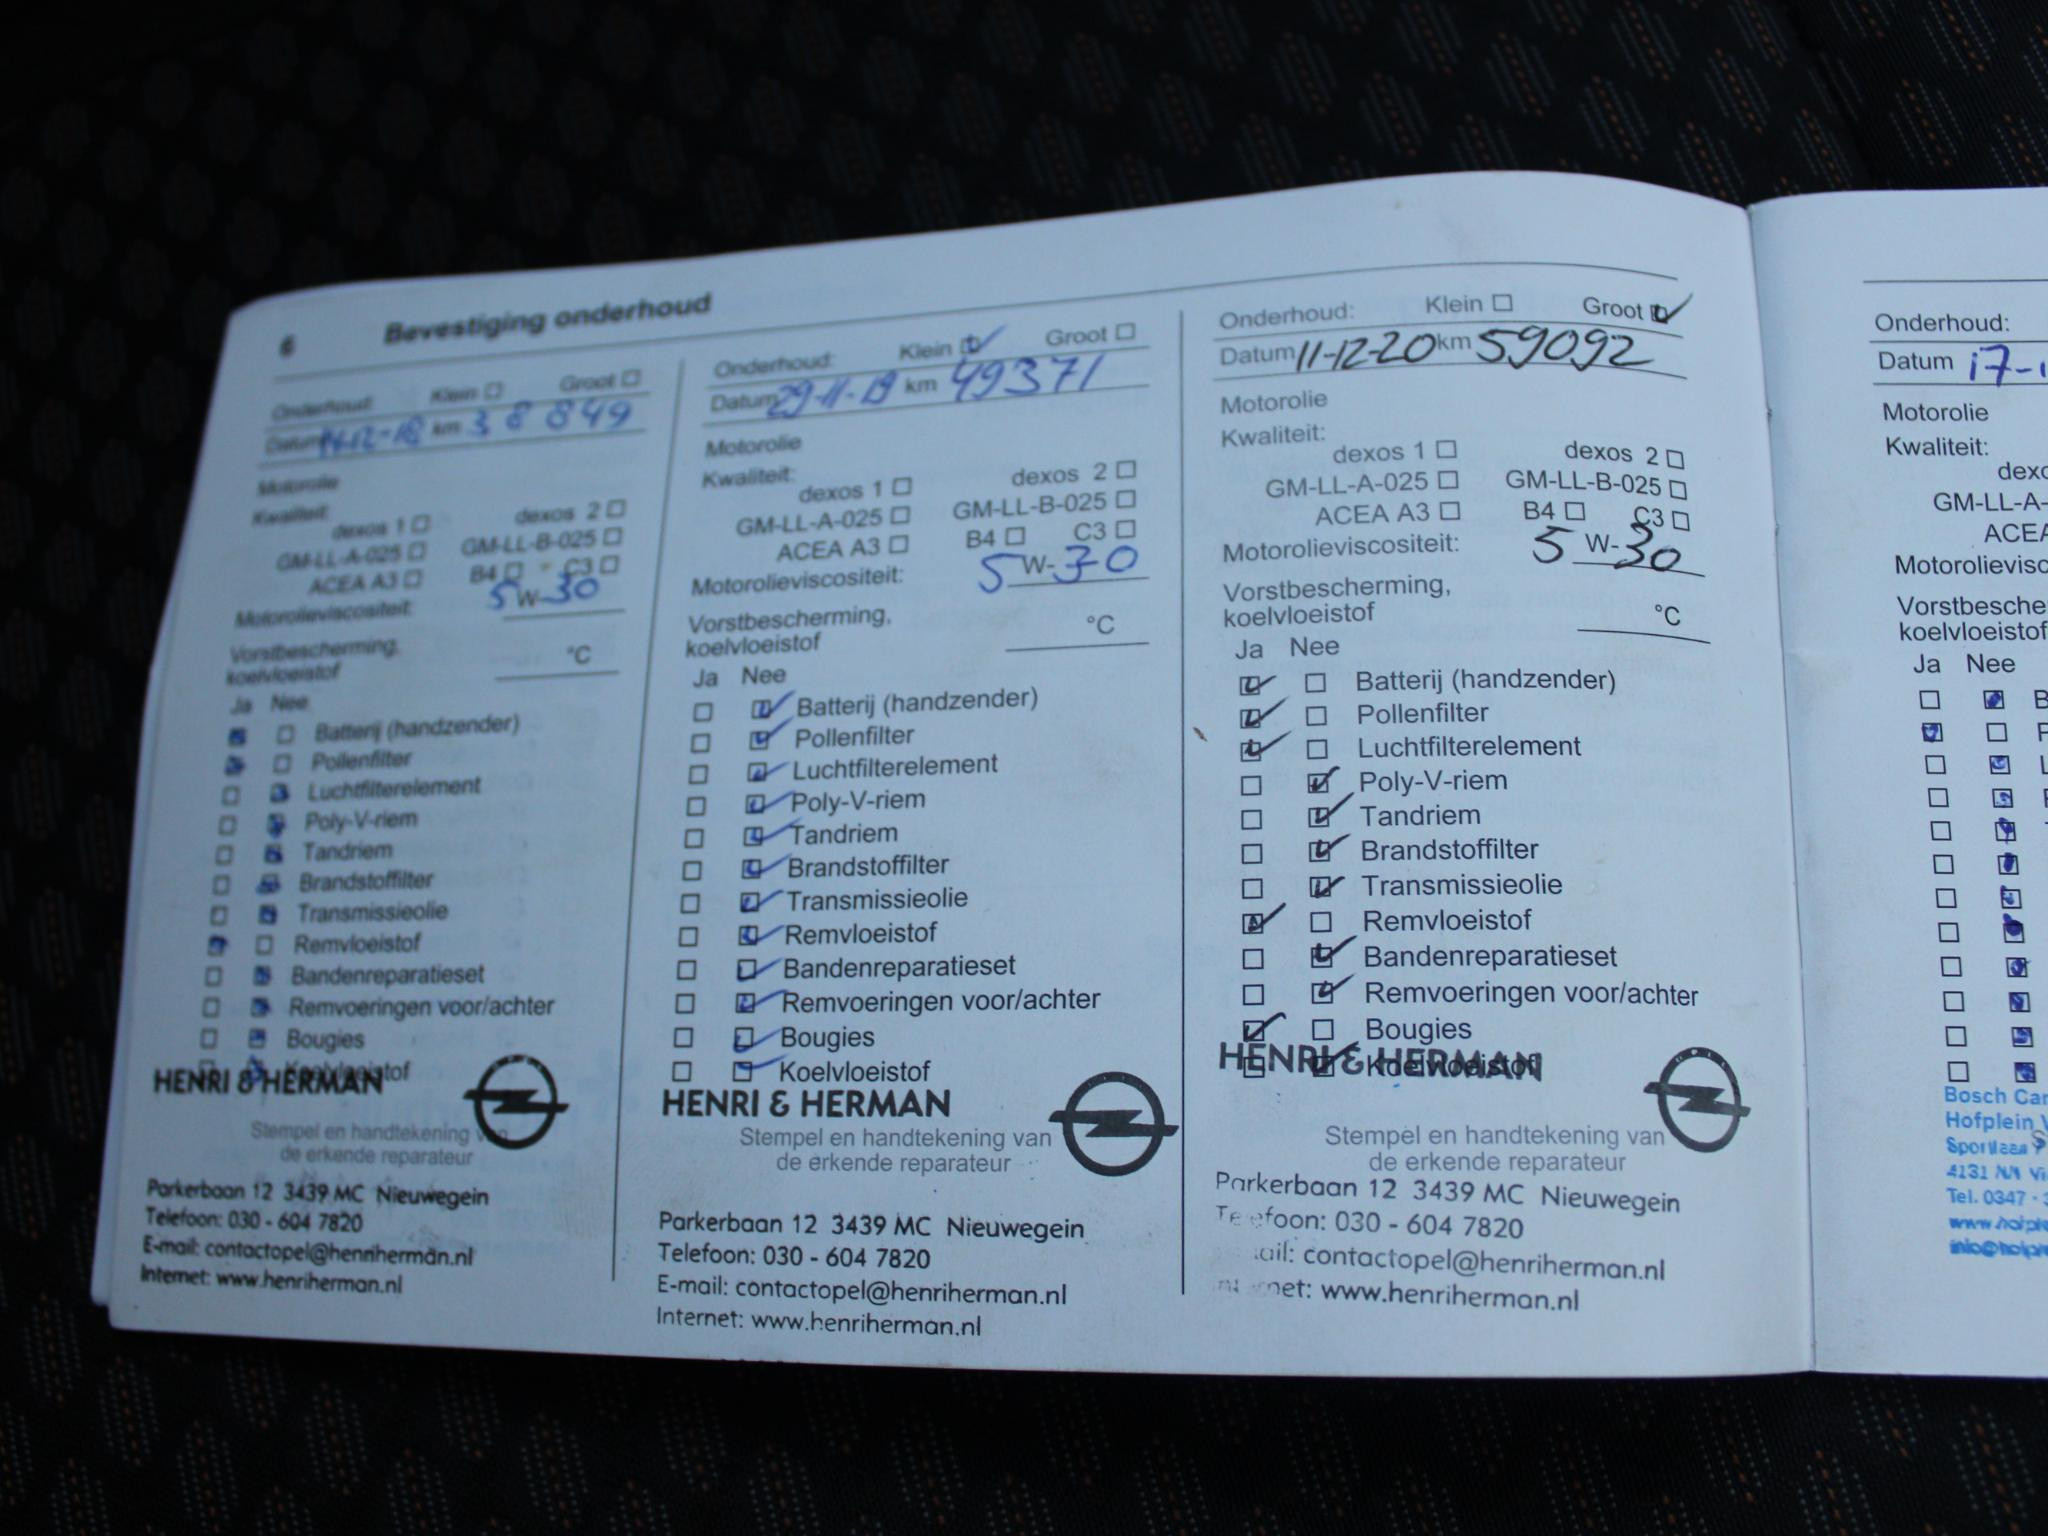 6 Bevestiging onderhoud
Onderhoud: Klein Groot
Datum 14-12-18 km 38849
Motorolie
Kwaliteit:
dexos 1 dexos 2
GM-LL-A-025 GM-LL-B-025
ACEA A3 B4 C3
Motorolieviscositeit: 5 W-30
Vorstbescherming,
koelvloeistof °C
Ja Nee
Batterij (handzender)
Pollenfilter
Luchtfilterelement
Poly-V-riem
Tandriem
Brandstoffilter
Transmissieolie
Remvloeistof
Bandenreparatieset
Remvoeringen voor/achter
Bougies
Koelvloeistof
HENRI & HERMAN
Stempel en handtekening van
de erkende reparateur
Parkerbaan 12 3439 MC Nieuwegein
Telefoon: 030 - 604 7820
E-mail: contactopel@henriherman.nl
Internet: www.henriherman.nl
Onderhoud: Klein Groot
Datum 29-11-19 km 49371
Motorolie
Kwaliteit:
dexos 1 dexos 2
GM-LL-A-025 GM-LL-B-025
ACEA A3 B4 C3
Motorolieviscositeit: 5 W-30
Vorstbescherming,
koelvloeistof °C
Ja Nee
Batterij (handzender)
Pollenfilter
Luchtfilterelement
Poly-V-riem
Tandriem
Brandstoffilter
Transmissieolie
Remvloeistof
Bandenreparatieset
Remvoeringen voor/achter
Bougies
Koelvloeistof
HENRI & HERMAN
Stempel en handtekening van
de erkende reparateur
Parkerbaan 12 3439 MC Nieuwegein
Telefoon: 030 - 604 7820
E-mail: contactopel@henriherman.nl
Internet: www.henriherman.nl
Onderhoud: Klein Groot
Datum 11-12-20 km 59092
Motorolie
Kwaliteit:
dexos 1 dexos 2
GM-LL-A-025 GM-LL-B-025
ACEA A3 B4 C3
Motorolieviscositeit: 5 W-30
Vorstbescherming,
koelvloeistof °C
Ja Nee
Batterij (handzender)
Pollenfilter
Luchtfilterelement
Poly-V-riem
Tandriem
Brandstoffilter
Transmissieolie
Remvloeistof
Bandenreparatieset
Remvoeringen voor/achter
Bougies
Koelvloeistof
HENRI & HERMAN
Stempel en handtekening van
de erkende reparateur
Parkerbaan 12 3439 MC Nieuwegein
Telefoon: 030 - 604 7820
ail: contactopel@henriherman.nl
net: www.henriherman.nl
Onderhoud:
Datum 17-1
Motorolie
Kwaliteit:
dexo
GM-LL-A-
ACEA
Motorolievisc
Vorstbescher
koelvloeistof
Ja Nee
Bosch Car
Hofplein
4131 NN
Tel. 0347 -